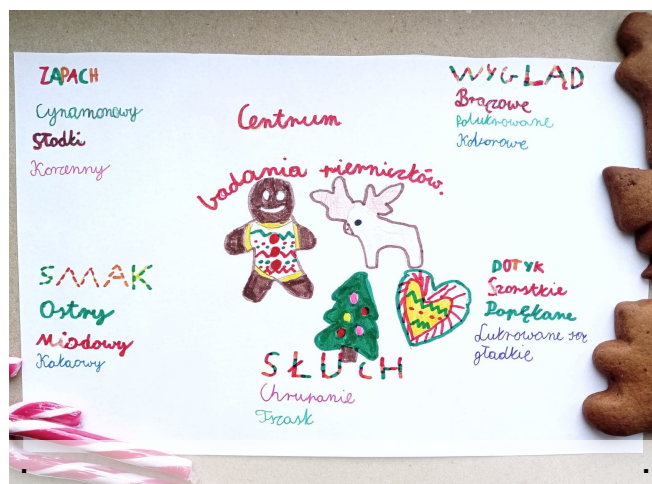 ZAPACH
Cynamonowy
Słodki
Korzenny
Centrum
badania pierniczków.
WYGLĄD
Brązowe
Polukrowane
Kolorowe
SMAK
Ostry
Miodowy
Kakaowy
DOTYK
Szorstkie
Popękane
Lukrowane są
gładkie
SŁUCH
Chrupanie
Trzask